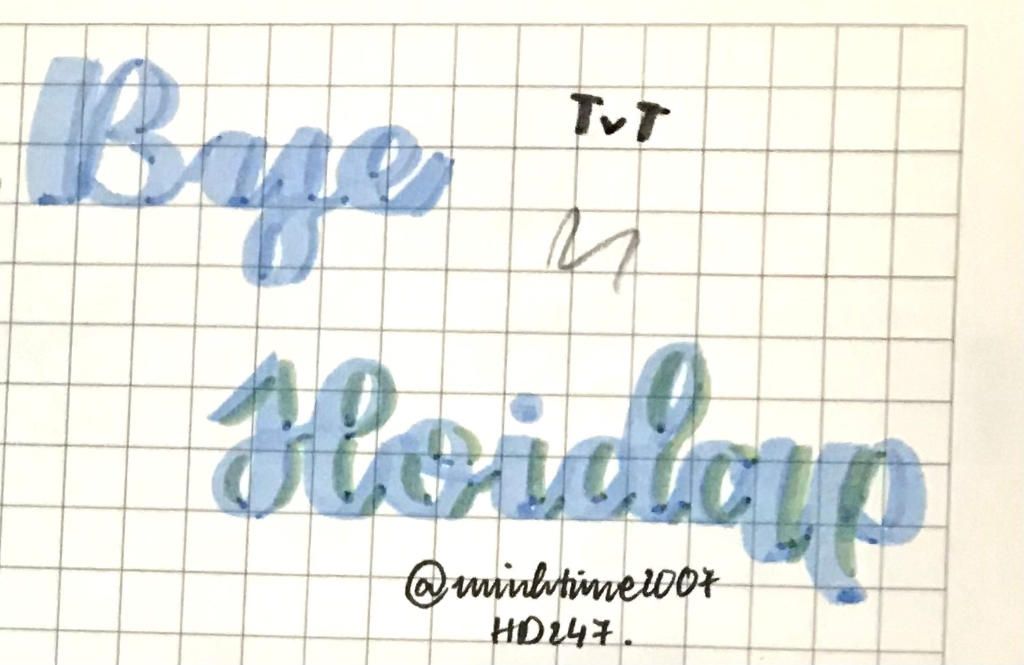 Bye
TvT
Hoidap
@minhtime2007
HD247.